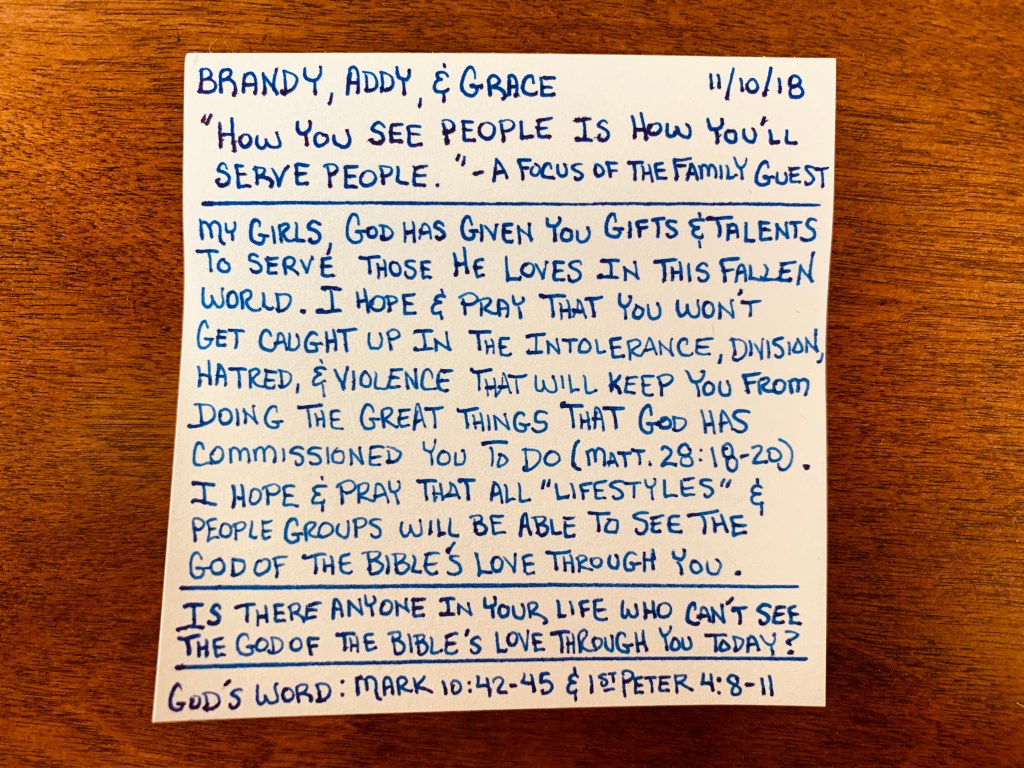 BRANDY, ADDY, & GRACE 11/10/18
"HOW YOU SEE PEOPLE IS HOW YOU'LL
SERVE PEOPLE." - A FOCUS OF THE FAMILY GUEST
MY GIRLS, GOD HAS GIVEN YOU GIFTS & TALENTS
TO SERVE THOSE HE LOVES IN THIS FALLEN
WORLD. I HOPE & PRAY THAT YOU WON'T
GET CAUGHT UP IN THE INTOLERANCE, DIVISION,
HATRED, & VIOLENCE THAT WILL KEEP YOU FROM
DOING THE GREAT THINGS THAT GOD HAS
COMMISSIONED YOU TO DO (MATT. 28:18-20).
I HOPE & PRAY THAT ALL "LIFESTYLES" &
PEOPLE GROUPS WILL BE ABLE TO SEE THE
GOD OF THE BIBLE'S LOVE THROUGH YOU.
IS THERE ANYONE IN YOUR LIFE WHO CAN'T SEE
THE GOD OF THE BIBLE'S LOVE THROUGH YOU TODAY?
GOD'S WORD: MARK 10:42-45 & 1ST PETER 4:8-11